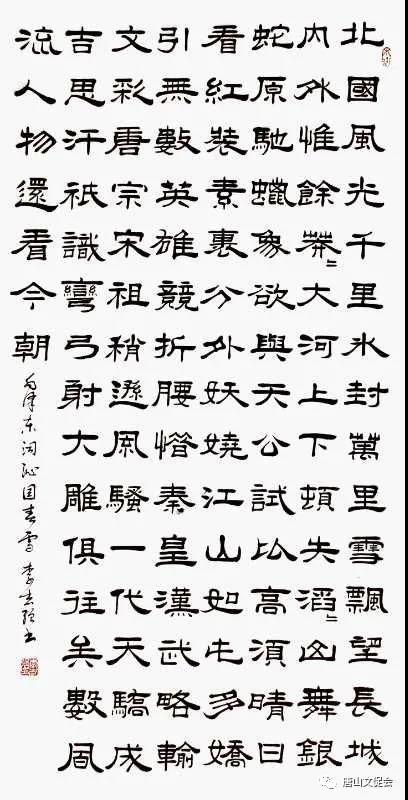 北國風光千里氷封萬里雪飄望長城
内外惟餘莽〻大河上下頓失滔〻山舞銀
蛇原馳蠟象欲與天公試比高須晴日
看紅裝素裹分外妖嬈江山如此多嬌
引無數英雄競折腰惜秦皇漢武略輸
文彩唐宗宋祖稍遜風騷一代天驕成
吉思汗祇識彎弓射大雕俱往矣數風
流人物還看今朝
毛泽东词沁园春雪 李志强书
唐山文促会